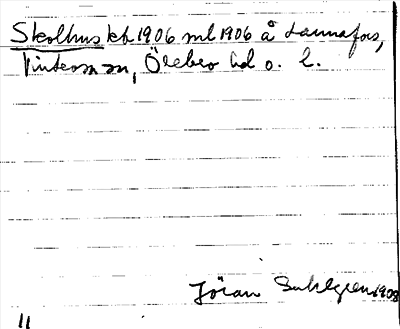 Skolhus kt 1906 ml 1906 å Lannafors,
Tinterns sn, Örebro hd o. l.
Jöran Sahlgren 1908
11